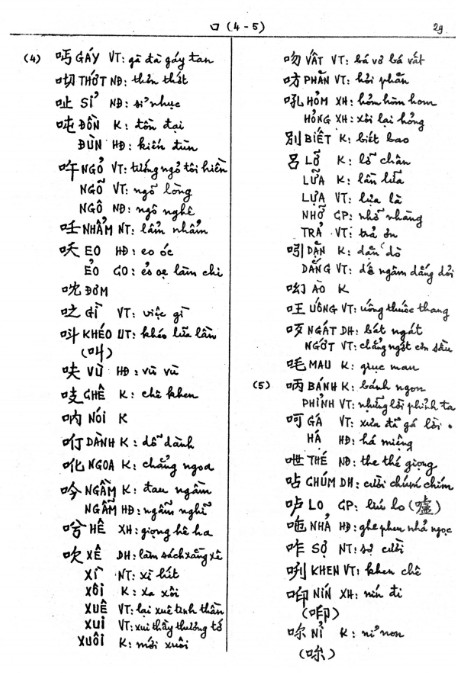 口 (4-5)
29
(4) 吗 GÁY VT: gà đà gáy tan
THỚT NĐ: thưa thớt
吡 SỈ NĐ: sỉ nhục
吨 ĐỒN K: đồn đại
ĐÙN HĐ: kiến đùn
吘 NGỎ VT: tiếng ngỏ tôi hiền
NGÕ VT: ngõ lòng
NGÔ NĐ: ngô nghê
NHẨM NT: lẩm nhẩm
EO HĐ: eo óc
ẺO GO: ẻo ẹ làm chi
吮 ĐƠM
GÌ VT: việc gì
KHÉO UT: khéo lừa lần
(叫)
呋 VÙ HĐ: vù vù
吱 GHÊ K: chê khen
呐 NÓI K
DÀNH K: dỗ dành
吪 NGOA K: chẳng ngoa
吟 NGÂM K: đau ngâm
NGẪM HĐ: ngẫm nghĩ
HÊ XH: giọng hê ha
吹 XÊ DH: làm sách xàng xê
XÌ NT: xì hắt
XÔI K: xa xôi
XUÊ VT: lại xuê tinh thần
XUI VT: xui thầy thưởng tớ
XUÔI K: mới xuôi
吻 VẤT VT: bá vơ bá vất
PHÂN VT: hỏi phân
吼 HỎM XH: hỏm hòm hom
HỎNG XH: xôi lại hỏng
別 BIẾT K: biết bao
呂 LỠ K: lỡ chân
LỮA K: lần lữa
LỰA VT: lựa là
NHỠ GP: nhỡ nhàng
TRẢ VT: trả ơn
DẪN K: dẫn dò
DẮNG VT: dế ngâm dắng dỏi
ÀO K
UỐNG VT: uống thuốc thang
NGÁT DH: bát ngát
NGỚT VT: chẳng ngớt cơn sầu
MAU K: giục mau
(5) 昞 BÁNH K: bánh ngon
PHỈNH VT: những lời phỉnh ta
呵 GÁ VT: xưa đã gá lời
HÁ HĐ: há miệng
呭 THÉ NĐ: the thé giọng
呫 CHÚM DH: cười chúm chím
LO GP: líu lo (嚧)
NHẢ HĐ: ghe phen nhả ngọc
咋 SỢ NT: sợ cười
KHEN VT: khen chê
NÍN XH: nín đi
NỈ K: nỉ non